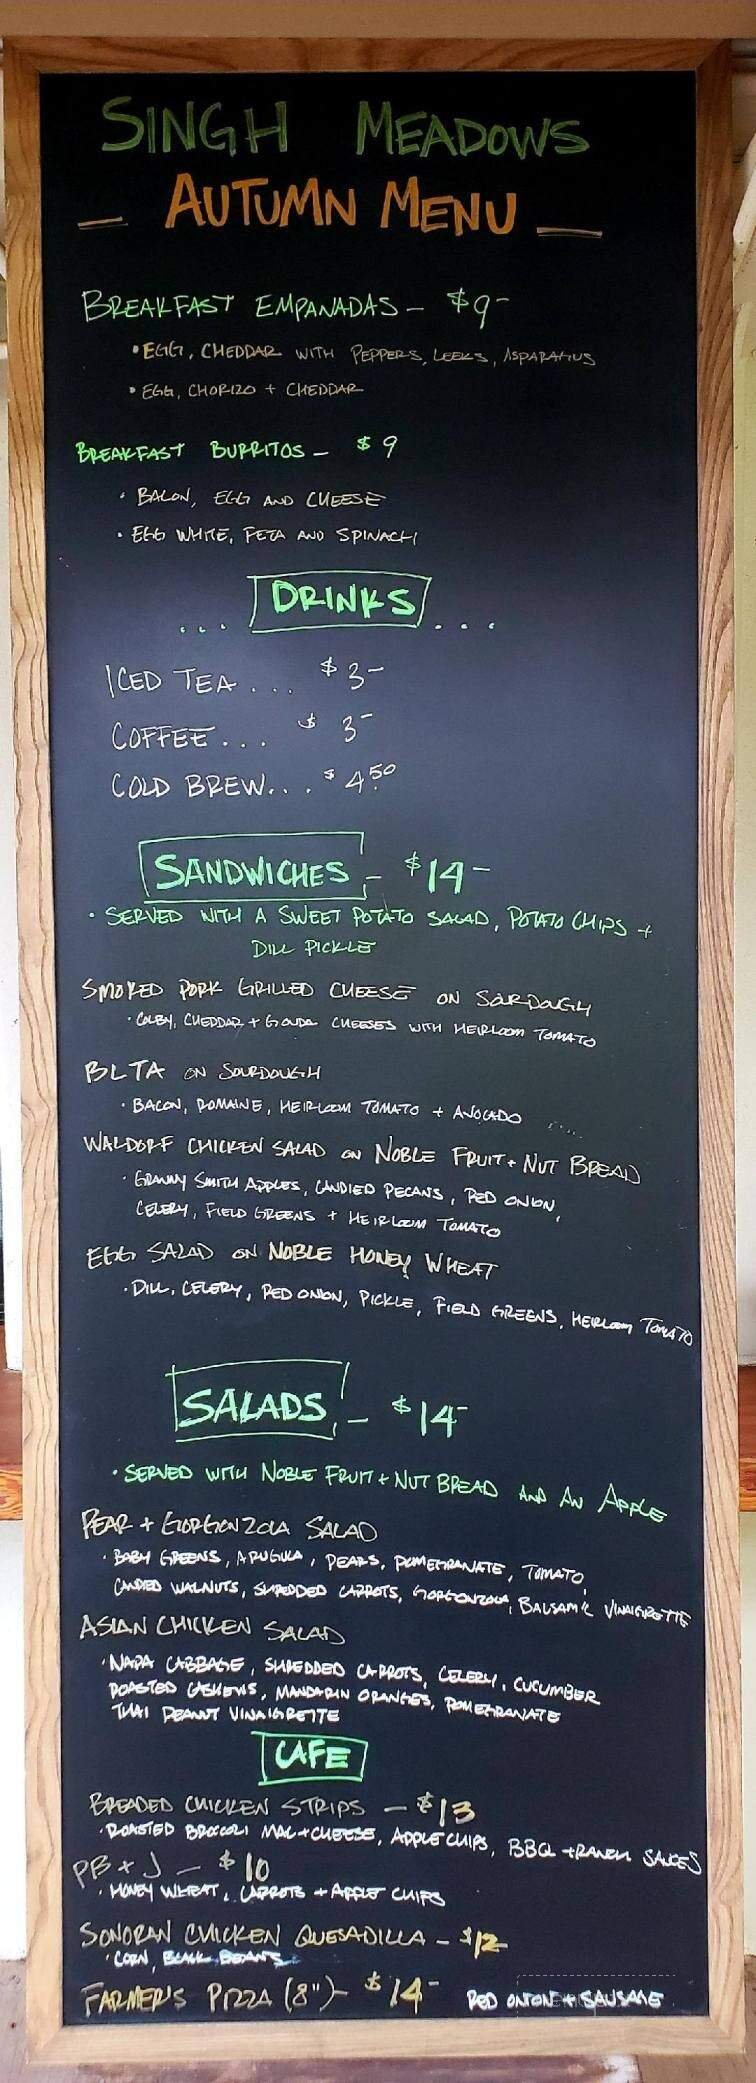 SINGH MEADOWS
— AUTUMN MENU —
BREAKFAST EMPANADAS — $9-
• EGG, CHEDDAR WITH PEPPERS, LEEKS, ASPARAGUS
• EGG, CHORIZO + CHEDDAR
BREAKFAST BURRITOS — $9
• BACON, EGG AND CHEESE
• EGG WHITE, FETA AND SPINACH
... DRINKS ...
ICED TEA ... $3-
COFFEE ... $3-
COLD BREW... $4.50
SANDWICHES — $14-
• SERVED WITH A SWEET POTATO SALAD, POTATO CHIPS +
DILL PICKLE
SMOKED PORK GRILLED CHEESE ON SOURDOUGH
• COLBY, CHEDDAR + GOUDA CHEESES WITH HEIRLOOM TOMATO
BLTA ON SOURDOUGH
• BACON, ROMAINE, HEIRLOOM TOMATO + AVOCADO
WALDORF CHICKEN SALAD ON NOBLE FRUIT + NUT BREAD
• GRANNY SMITH APPLES, CANDIED PECANS, RED ONION,
CELERY, FIELD GREENS + HEIRLOOM TOMATO
EGG SALAD ON NOBLE HONEY WHEAT
• DILL, CELERY, RED ONION, PICKLE, FIELD GREENS, HEIRLOOM TOMATO
SALADS — $14-
• SERVED WITH NOBLE FRUIT + NUT BREAD AND AN APPLE
PEAR + GORGONZOLA SALAD
• BABY GREENS, ARUGULA, PEARS, POMEGRANATE, TOMATO,
CANDIED WALNUTS, SHREDDED CARROTS, GORGONZOLA, BALSAMIC VINAIGRETTE
ASIAN CHICKEN SALAD
• NAPA CABBAGE, SHREDDED CARROTS, CELERY, CUCUMBER
ROASTED CASHEWS, MANDARIN ORANGES, POMEGRANATE
THAI PEANUT VINAIGRETTE
CAFE
BREADED CHICKEN STRIPS — $13
• ROASTED BROCCOLI MAC + CHEESE, APPLE CHIPS, BBQ + RANCH SAUCES
PB + J — $10
• HONEY WHEAT, CARROTS + APPLE CHIPS
SONORAN CHICKEN QUESADILLA — $12
• CORN, BLACK BEANS
FARMER'S PIZZA (8") — $14- RED ONION + SAUSAGE